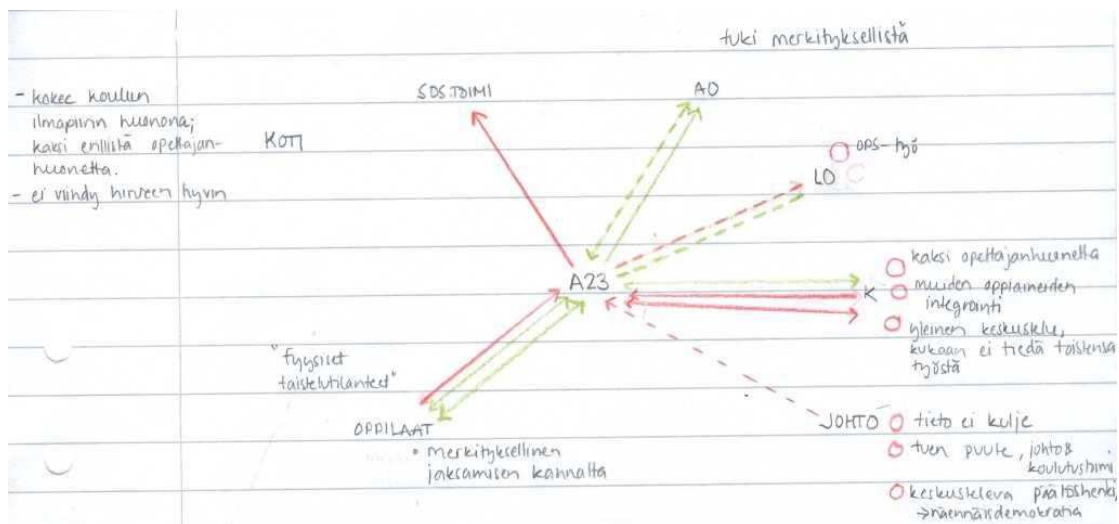 tuki merkityksellistä
- kokee koulun
ilmapiirin huonona;
kaksi erillistä opettajan-
huonetta.
- ei viihdy hirveen hyvin
KOTI
SOS.TOIMI
AO
OPS-työ
LO
A23
K
kaksi opettajanhuonetta
muiden oppiaineiden
integrointi
yleinen keskustelu,
kukaan ei tiedä toistensa
työstä
"fyysiset
taistelutilanteet"
OPPILAAT
• merkityksellinen
jaksamisen kannalta
JOHTO
tieto ei kulje
tuen puute, johto &
koulutustoimi
keskusteleva päätöshenki
→näennäisdemokratia